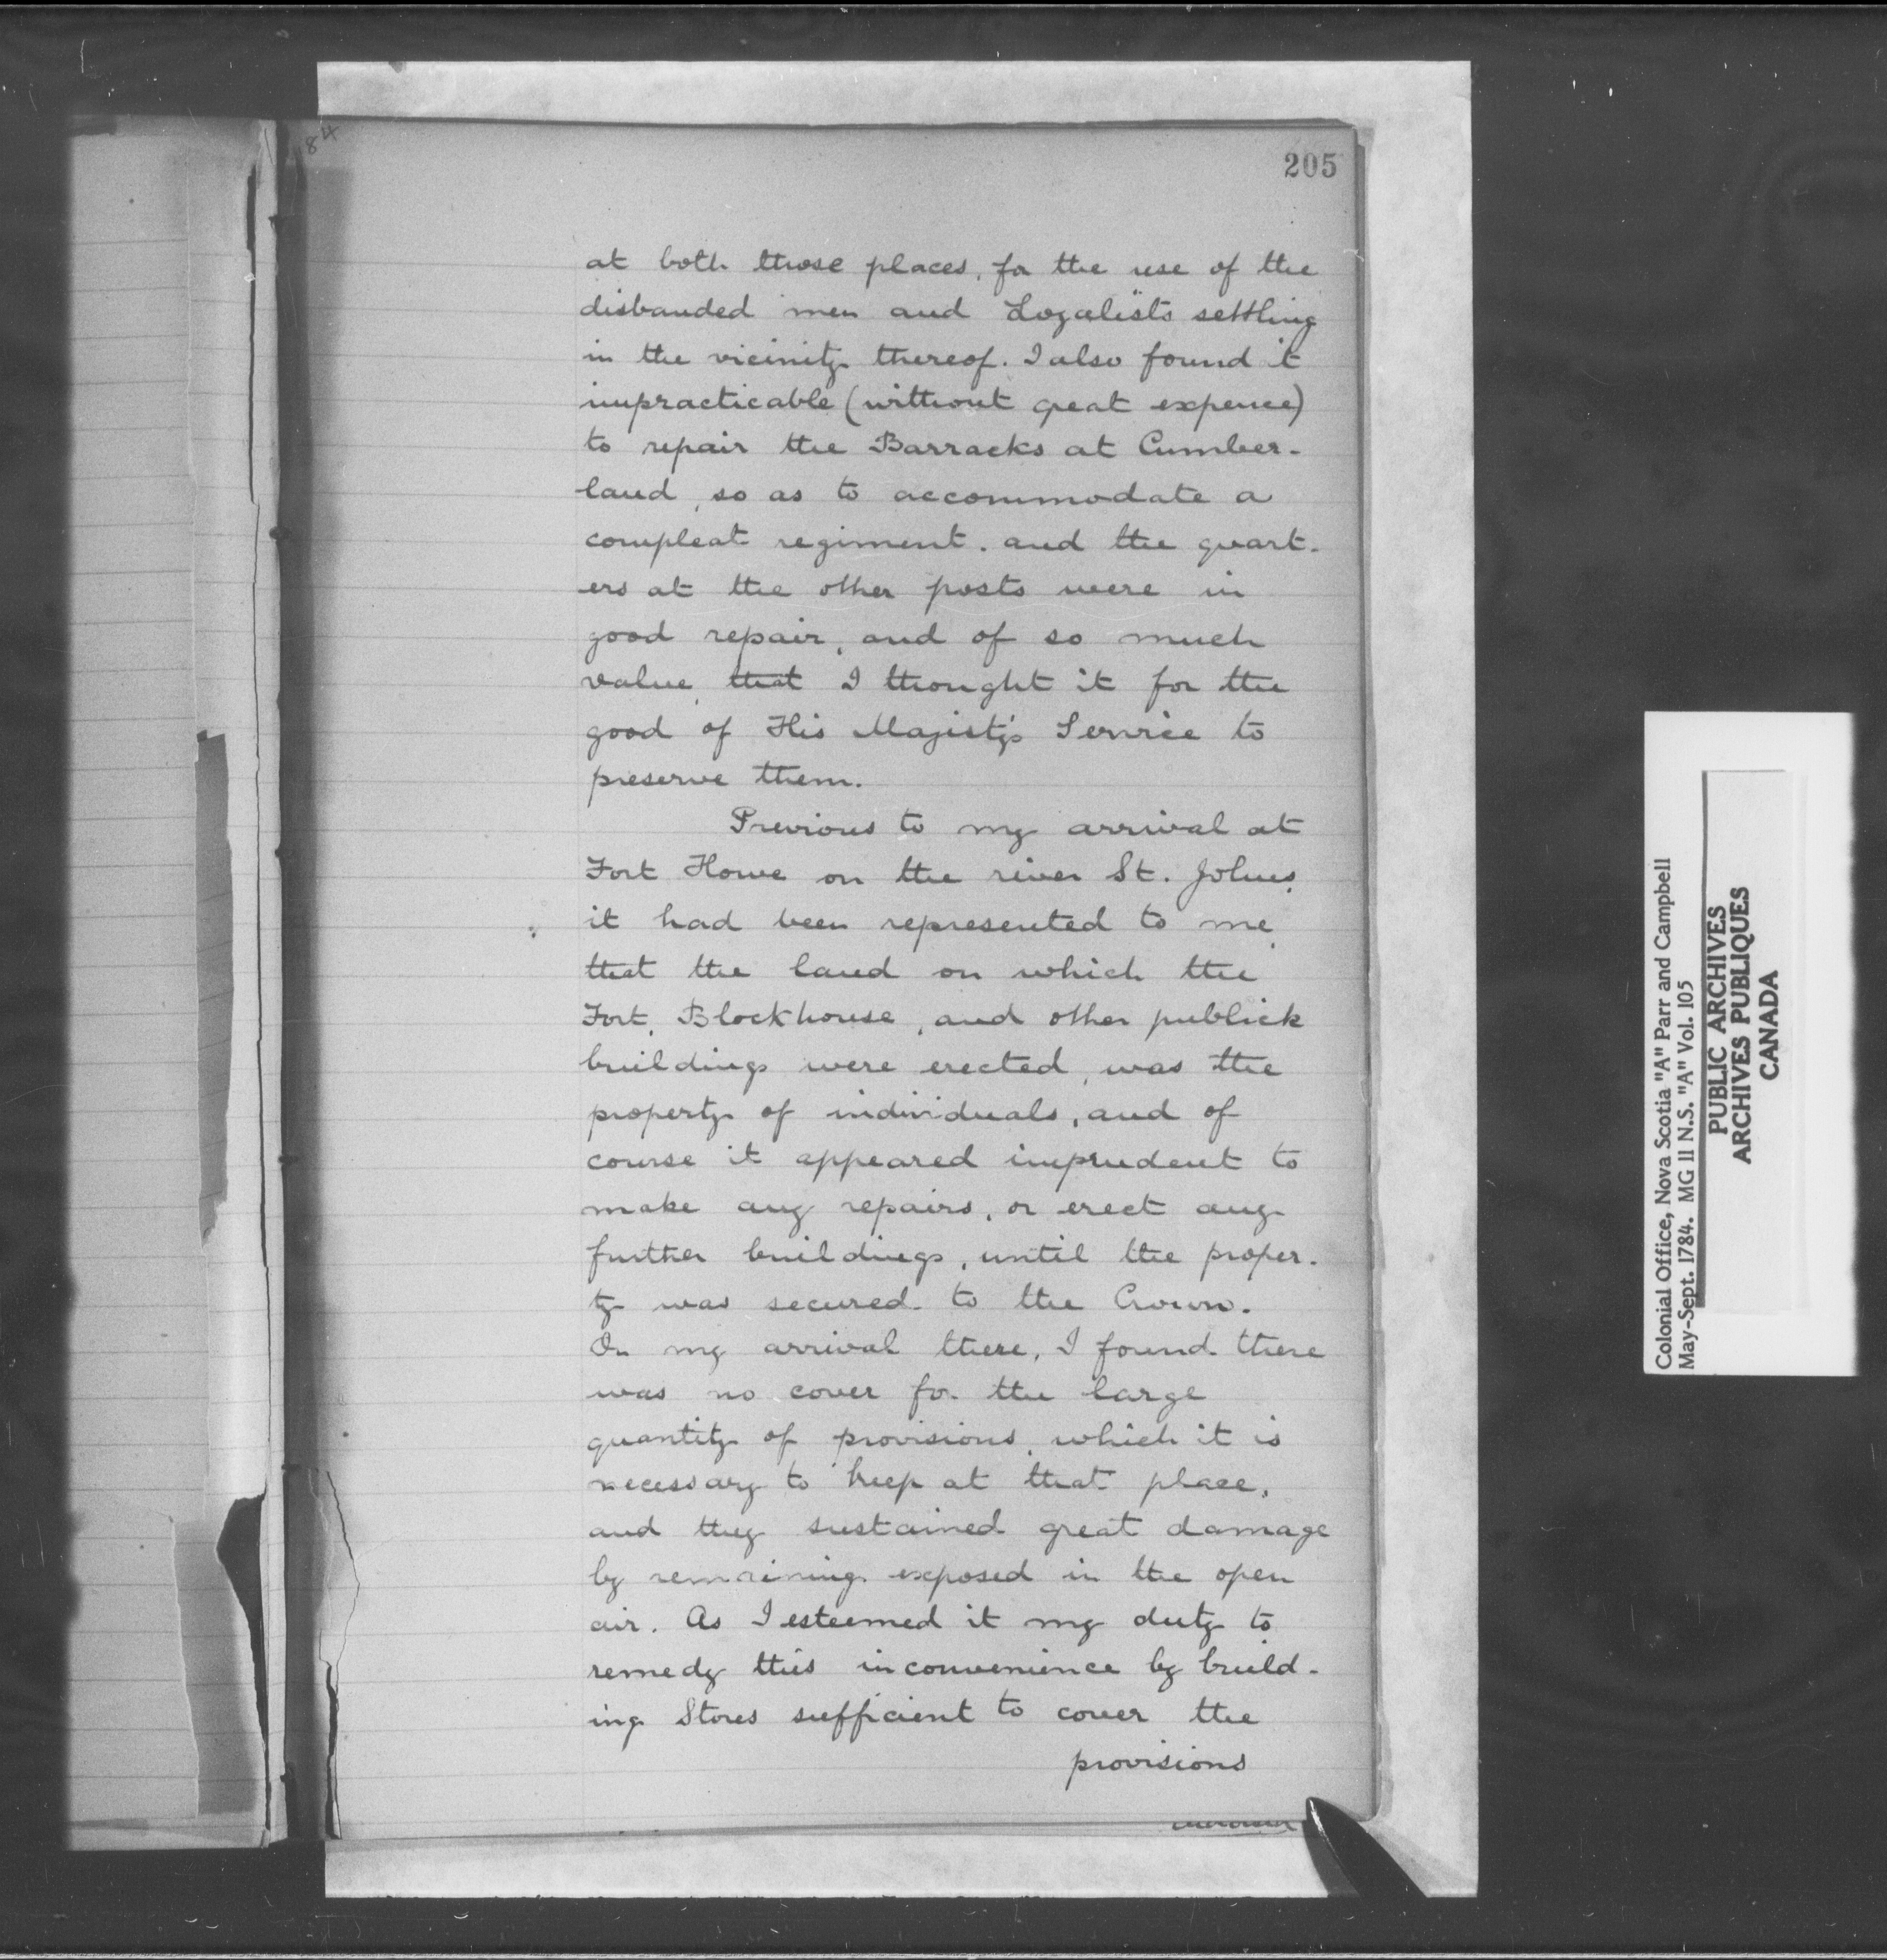 84
205
at both those places, for the use of the
disbanded men and Loyalists settling
in the vicinity thereof. I also found it
impracticable (without great expence)
to repair the Barracks at Cumber-
land, so as to accommodate a
compleat regiment. and the quart-
ers at the other posts were in
good repair, and of so much
value, that I thought it for the
good of His Majesty's Service to
preserve them.
Previous to my arrival at
Fort Howe on the river St. Johns,
it had been represented to me,
that the land on which the
Fort, Blockhouse, and other publick
buildings were erected, was the
property of individuals, and of
course it appeared imprudent to
make any repairs, or erect any
further buildings, until the proper-
ty was secured to the Crown.
On my arrival there, I found there
was no cover for the large
quantity of provisions, which it is
necessary to keep at that place,
and they sustained great damage
by remaining exposed in the open
air. As I esteemed it my duty to
remedy this inconvenience by build-
ing Stores sufficient to cover the
provisions
Colonial Office, Nova Scotia "A" Parr and Campbell
May-Sept. 1784. MG 11 N.S. "A" Vol. 105
PUBLIC ARCHIVES
ARCHIVES PUBLIQUES
CANADA